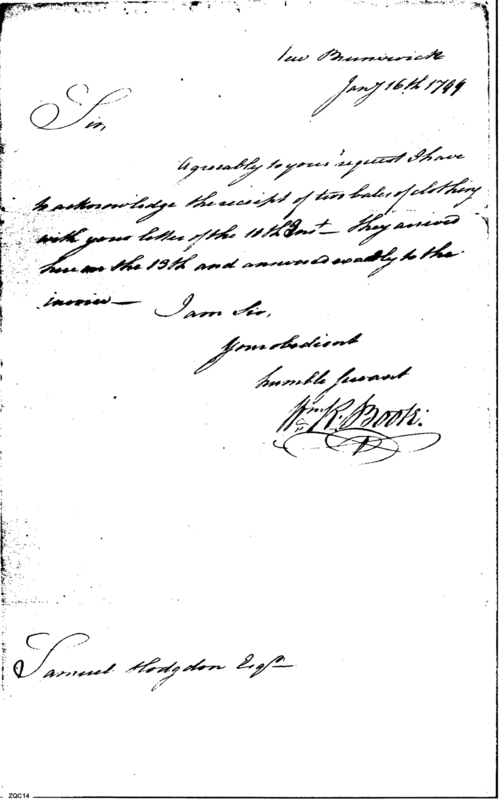 New Brunswick
Jany 16th 1799
Sir,
Agreeably to your request I have
to acknowledge the receipt of two bales of clothing
with your letter of the 10th Inst— they arrived
here on the 13th and answered exactly to the
invoice— I am Sir,
Your obedient
humble Servant
Wm R. Boote.
Samuel Hodgdon Esqr—
ZQC14